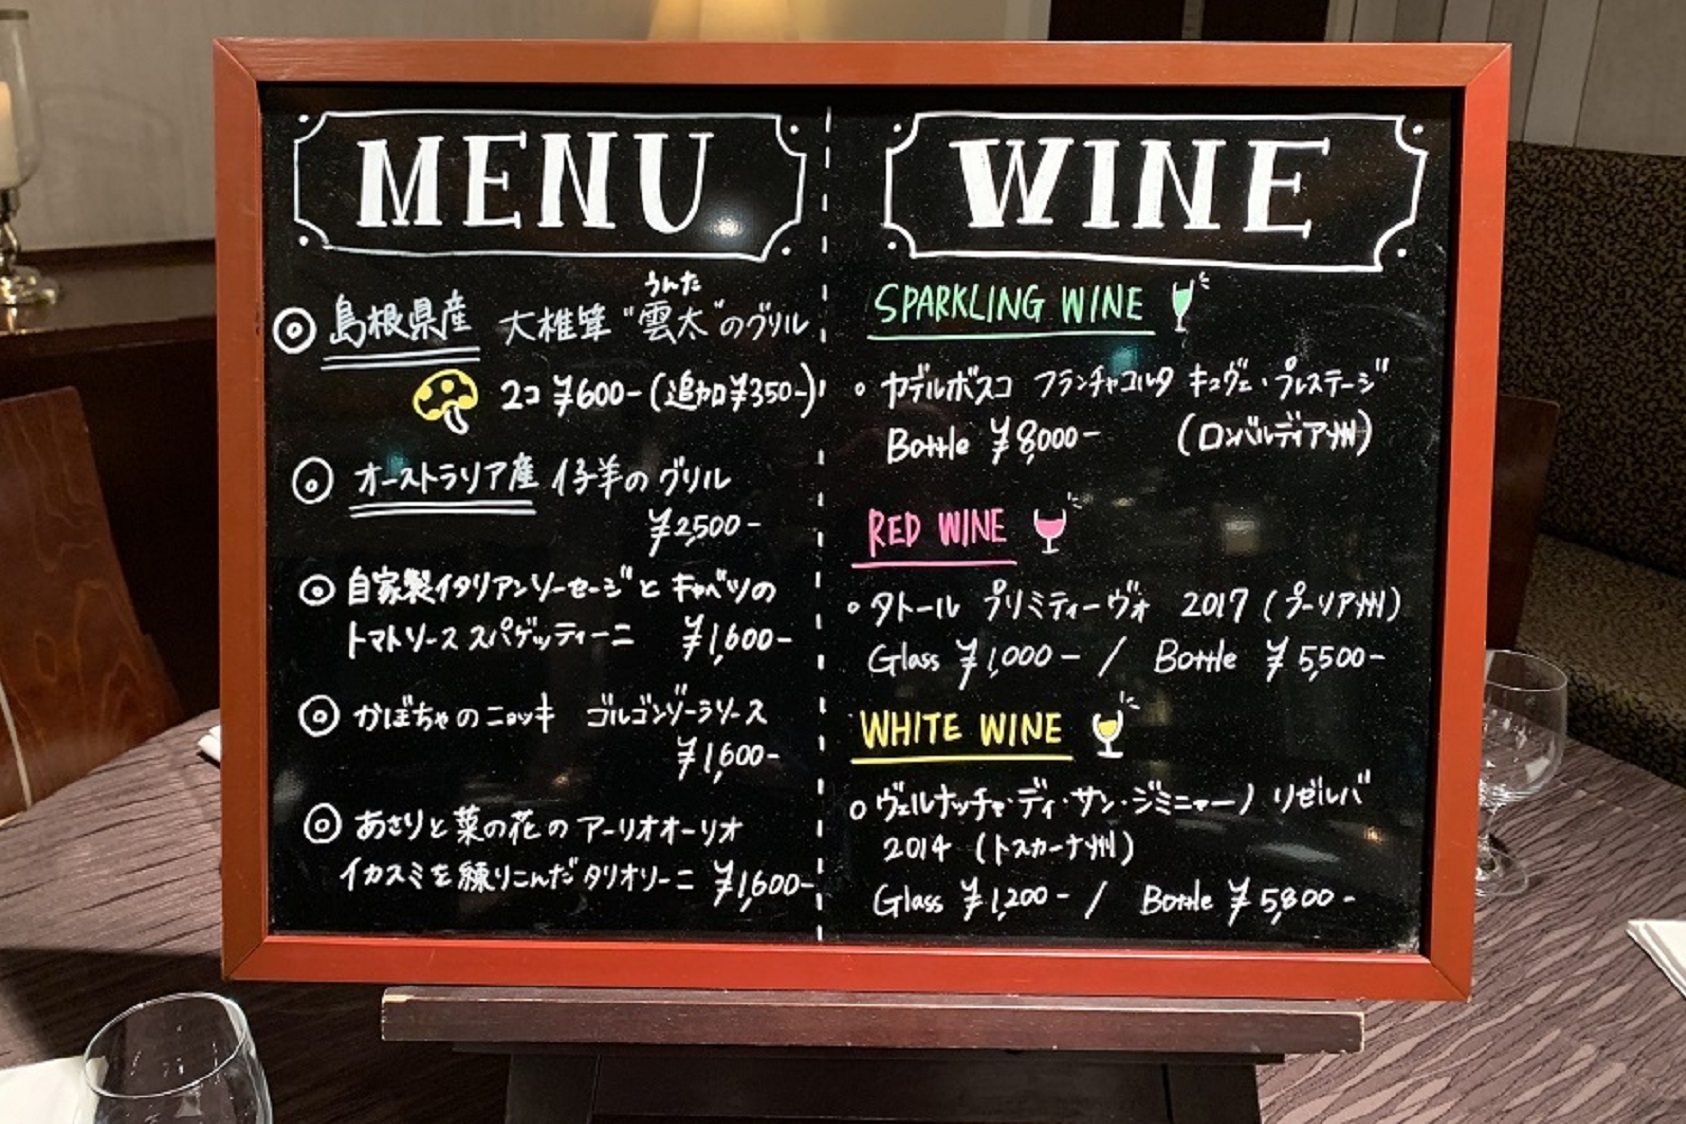 MENU
◎ 島根県産 大椎茸 "雲太"のグリル
うんた
2コ ¥600-(追加¥350-)
◎ オーストラリア産 仔羊の グリル
¥2,500-
◎ 自家製イタリアンソーセージと キャベツの
トマトソース スパゲッティーニ ¥1,600-
◎ かぼちゃのニョッキ ゴルゴンゾーラソース
¥1,600-
◎ あさりと菜の花の アーリオオーリオ
イカスミを練りこんだタリオリーニ ¥1,600-
WINE
SPARKLING WINE
○ カデルボスコ フランチャコルタ キュヴェ・プレステージ
Bottle ¥8,000- (ロンバルディア州)
RED WINE
○ タトール プリミティーヴォ 2017 (プーリア州)
Glass ¥1,000- / Bottle ¥5,500-
WHITE WINE
○ ヴェルナッチャ・ディ・サン・ジミニャーノ リゼルバ
2014 (トスカーナ州)
Glass ¥1,200- / Bottle ¥5,800-